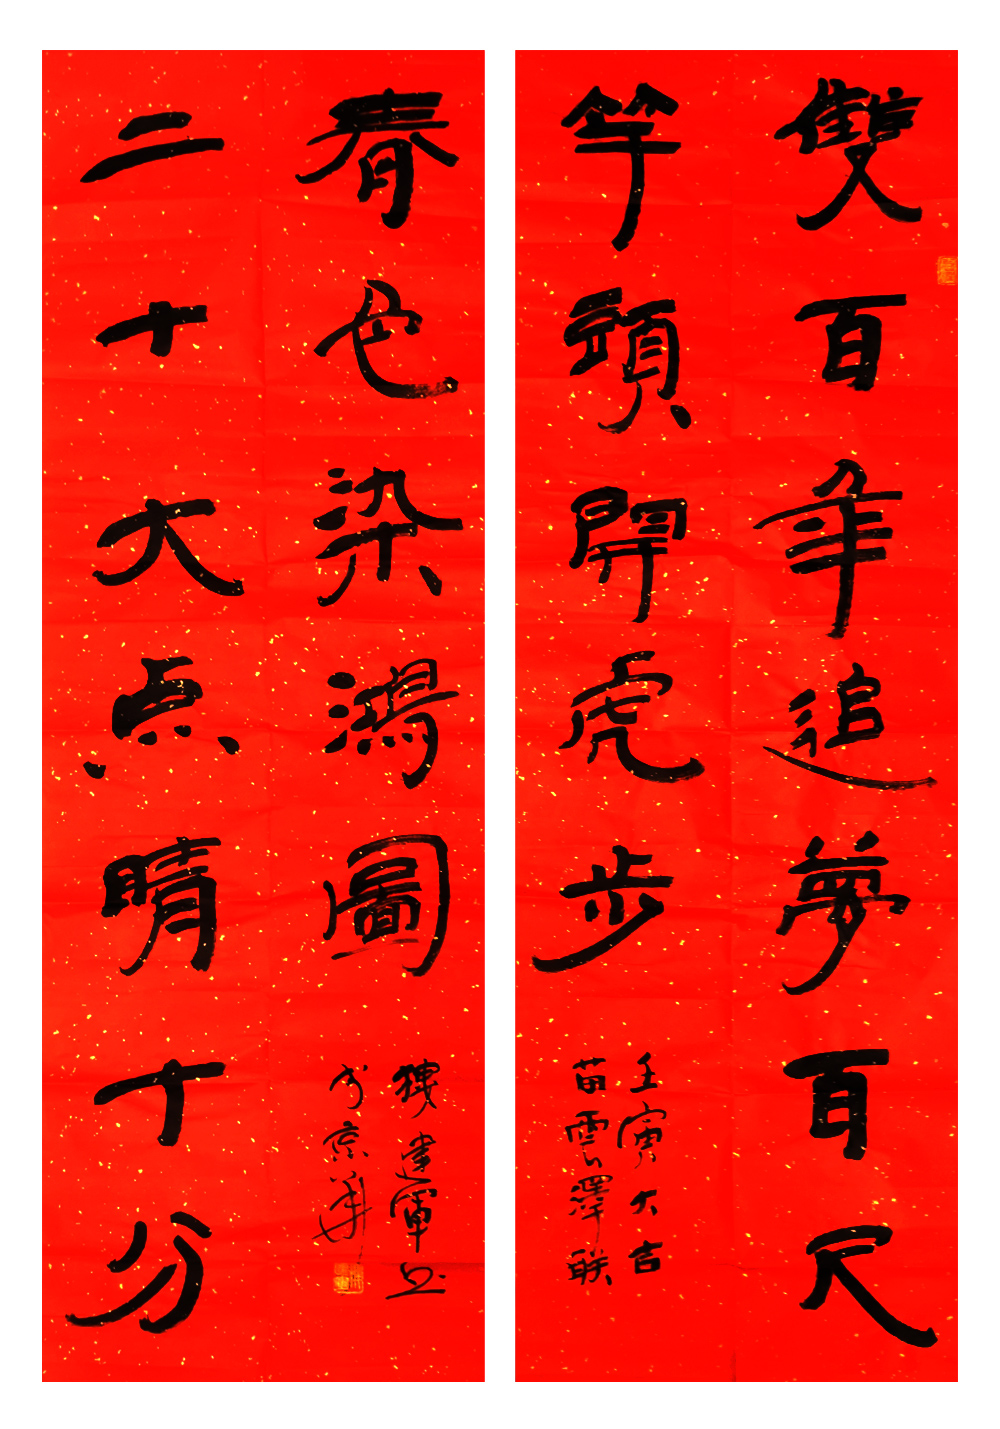 雙百年追夢百尺
竿頭開虎步
壬寅大吉
苗雲澤联
春色染鴻圖
二十大点晴十分
建軍书
於京華